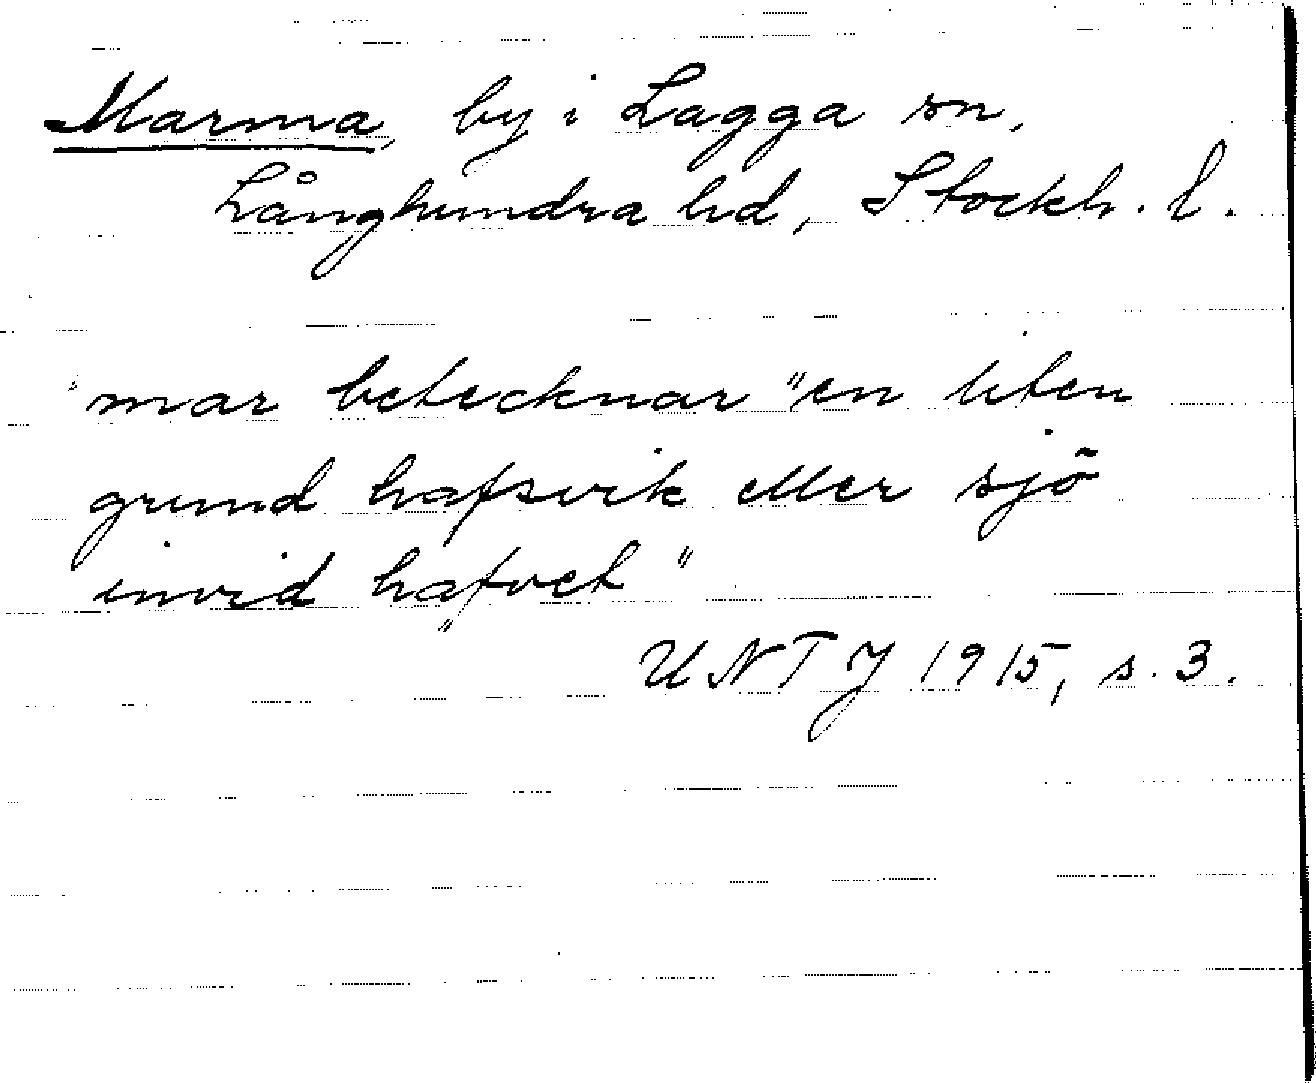 Marma, by i Lagga sn,
Långhundra hd, Stockh. l.
mar betecknar "en liten
grund hafsvik eller sjö
invid hafvet"
UNT J 1915, s. 3.